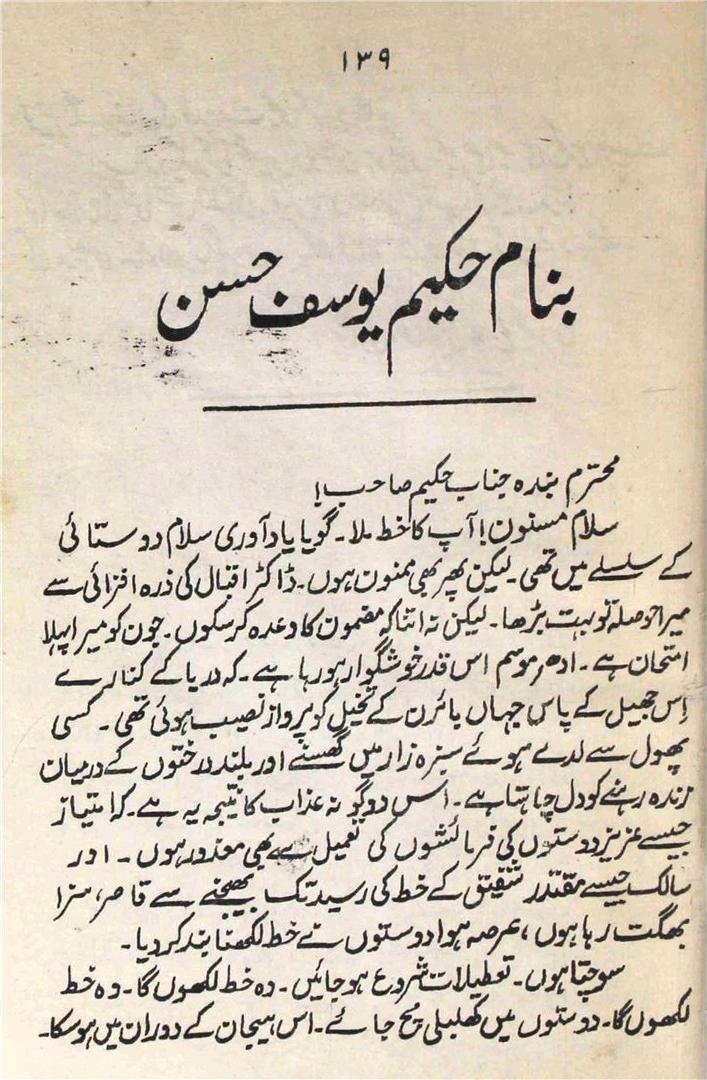 ۱۳۹
بنام حکیم یوسف حسن
محترم بندہ جناب حکیم صاحب!
سلام مسنون! آپ کا خط ملا۔ گویا یادآوری سلام دوستائی
کے سلسلے میں تھی۔ لیکن پھر بھی ممنون ہوں۔ ڈاکٹر اقبال کی ذرہ افزائی سے
میرا حوصلہ تو بہت بڑھا۔ لیکن نہ اتنا کہ مضمون کا وعدہ کر سکوں۔ جون کو میرا پہلا
امتحان ہے۔ ادھر موسم اس قدر خوشگوار ہو رہا ہے۔ کہ دریا کے کنارے
اِس جھیل کے پاس جہاں بائرن کے تخیل کو پرواز نصیب ہوئی تھی۔ کسی
پھول سے لدے ہوئے سبزہ زار میں گھسنے اور بلند درختوں کے درمیان
زندہ رہنے کو دل چاہتا ہے۔ اس دوگونہ عذاب کا نتیجہ یہ ہے۔ کہ امتیاز
جیسے عزیز دوستوں کی فرمائشوں کی تعمیل سے بھی معذور ہوں۔ اور
سالک جیسے مقتدر شفیق کے خط کی رسید تک بھیجنے سے قاصر، سزا
بھگت رہا ہوں، عرصہ ہوا دوستوں نے خط لکھنا بند کر دیا۔
سوچتا ہوں۔ تعطیلات شروع ہو جائیں۔ وہ خط لکھوں گا۔ وہ خط
لکھوں گا۔ دوستوں میں کھلبلی مچ جائے۔ اس ہیجان کے دوران میں ہو سکا۔